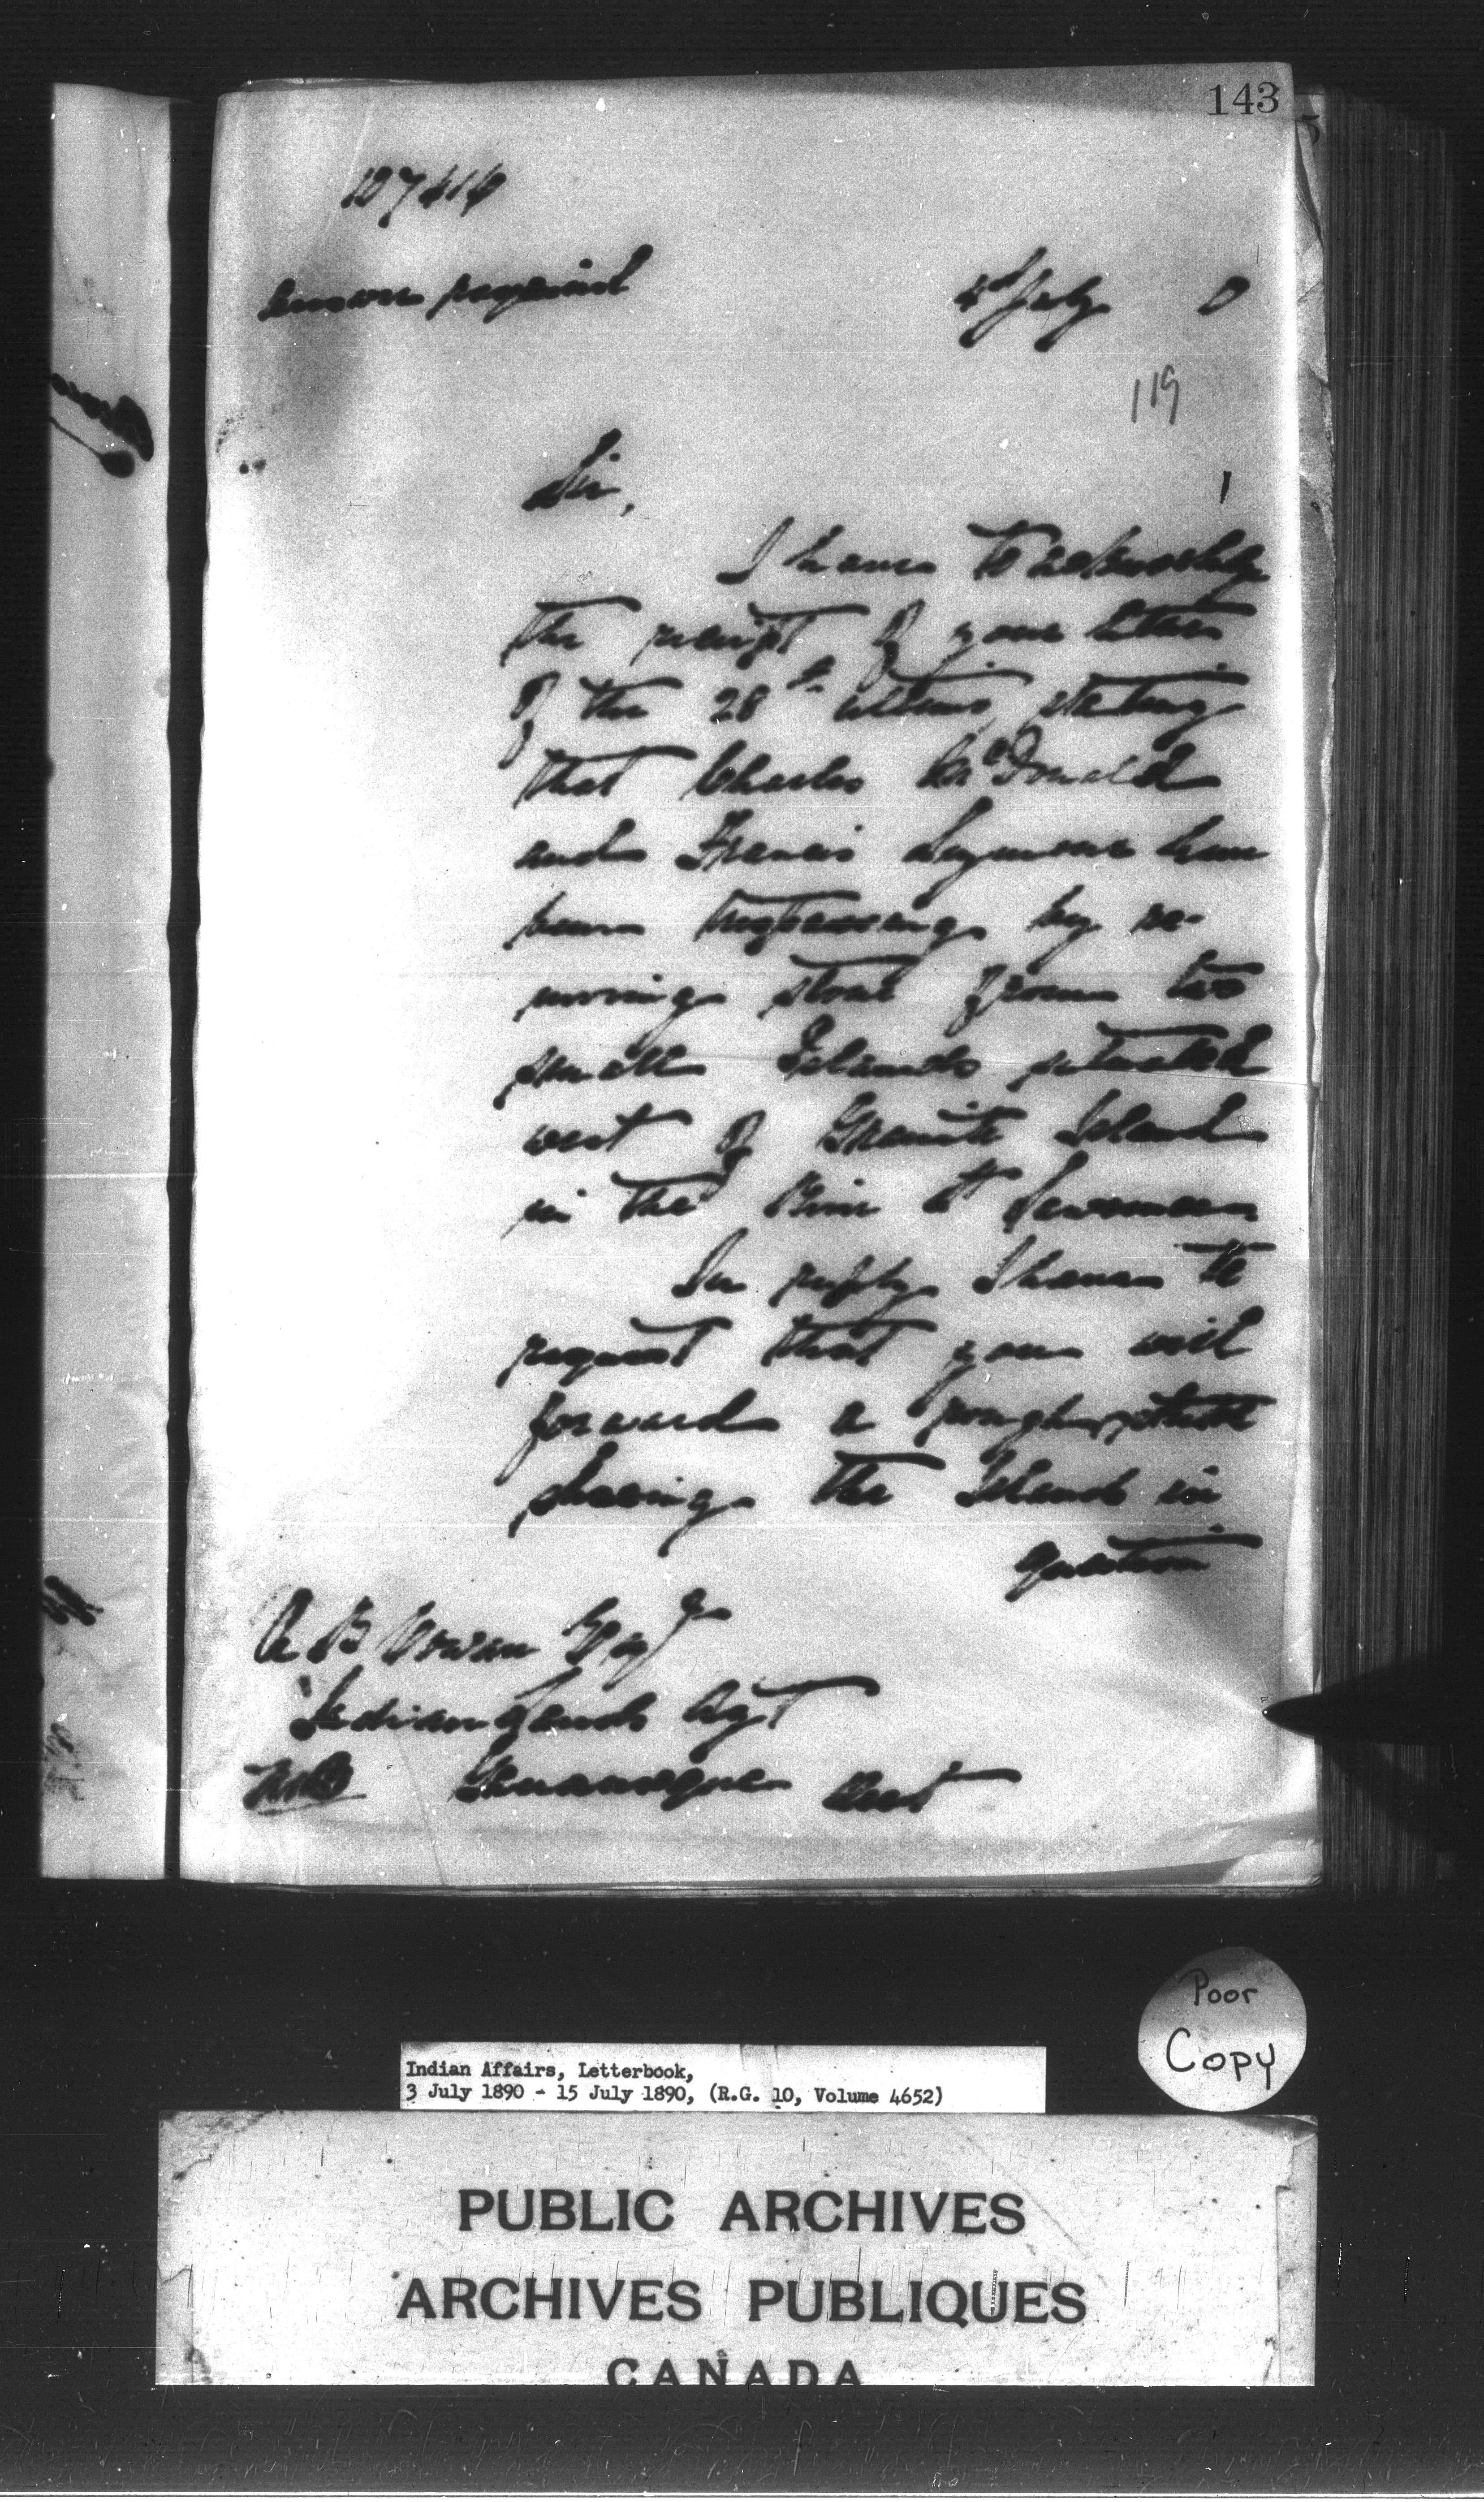 143
Answer required
4th July 0
119
Sir,
I have to acknowledge
the receipt of your letter
of the 28th ultimo, stating
that Charles McDonald
and Francis Seymour have
been trespassing by re-
moving stone from two
small Islands situated
west of Granite Island
in the River St Lawrence
In reply I have to
request that you will
forward a rough sketch
showing the Islands in
question
B Cowan Esqr
Indian Lands Agt
Gananoque Ont
Poor
Copy
Indian Affairs, Letterbook,
3 July 1890 - 15 July 1890, (R.G. 10, Volume 4652)
PUBLIC ARCHIVES
ARCHIVES PUBLIQUES
CANADA